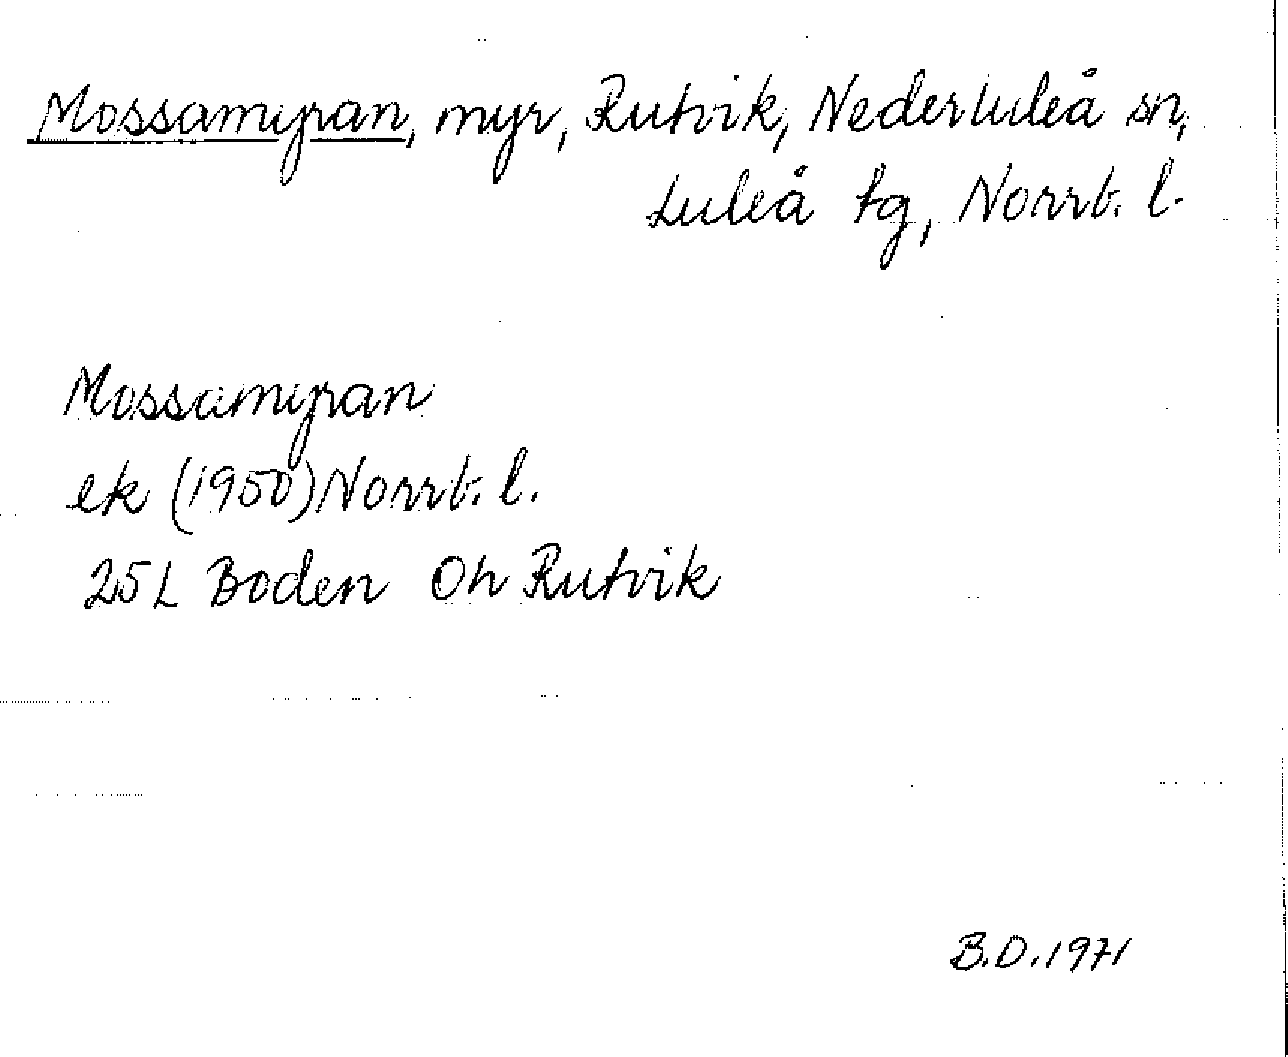 Mossamyran, myr, Rutvik, Nederluleå sn,
Luleå tg, Norrb. l.
Mossamyran
ek (1950) Norrb. l.
25L Boden Oh Rutvik
B.D. 1971